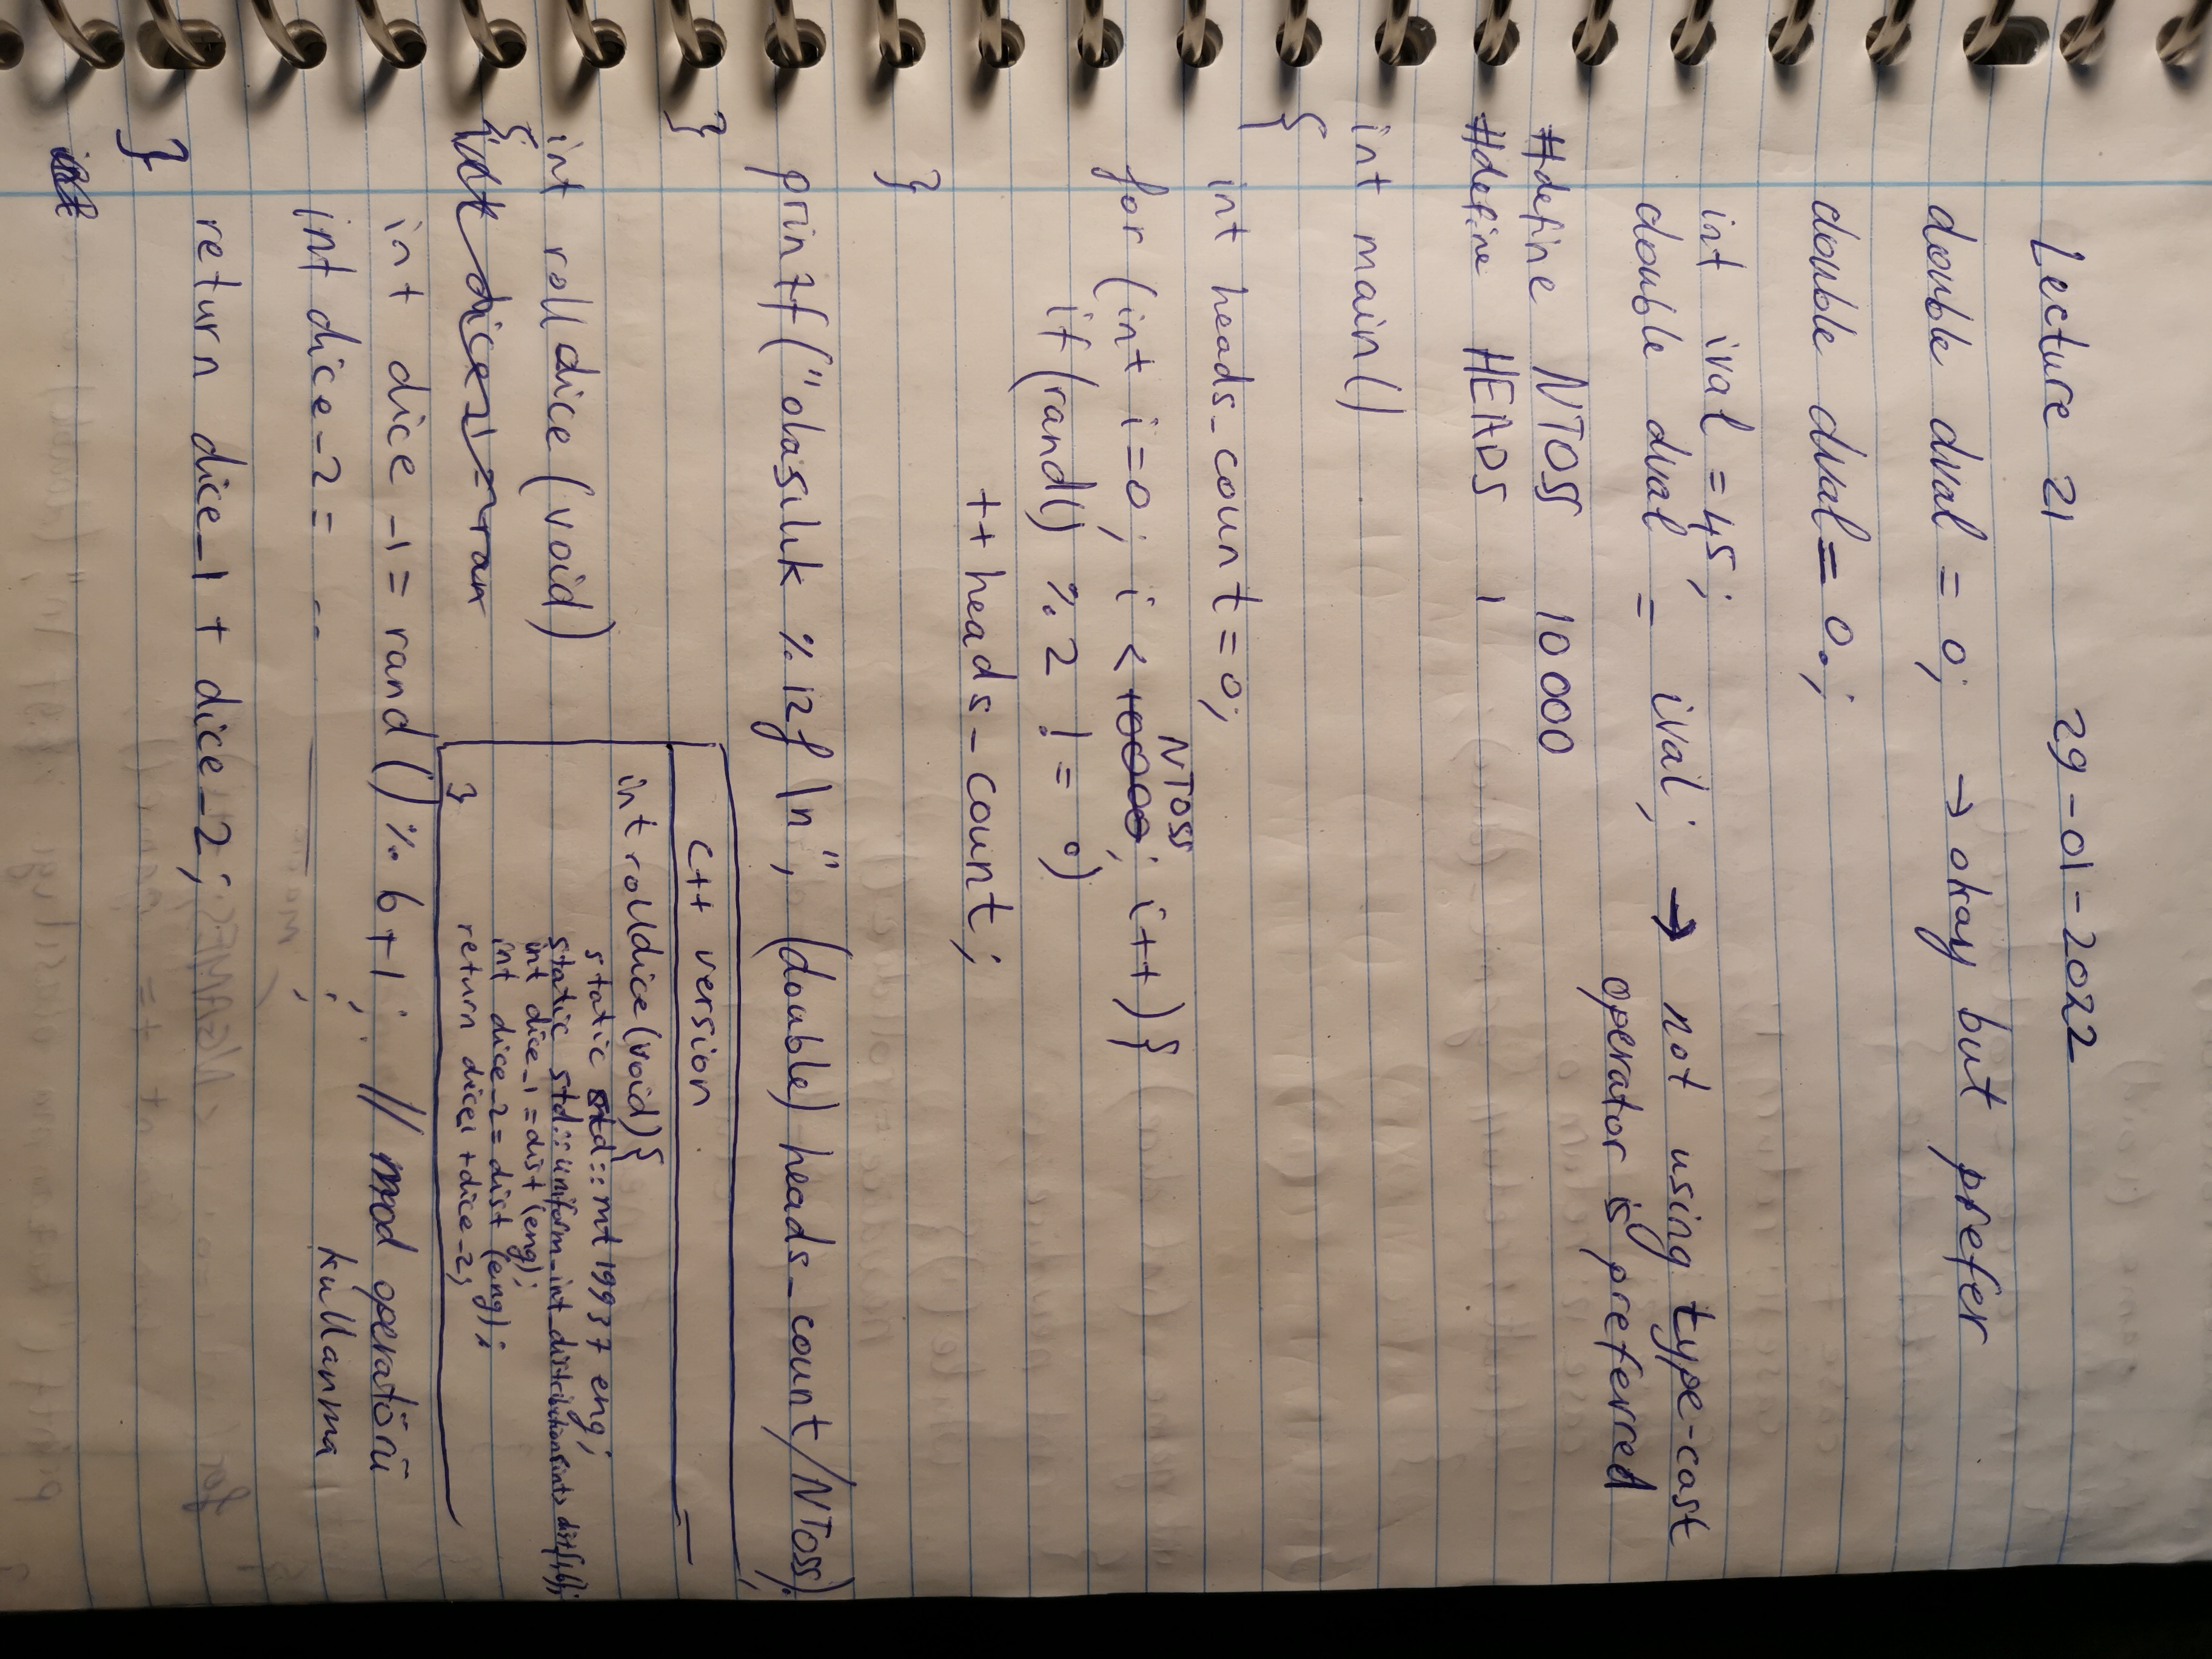 Lecture 21 29-01-2022
double dval = 0; → okay but prefer
double dval = 0.;
int ival = 45;
double dval = ival; → not using type-cast
operator is preferred
#define NTOSS 10000
#define HEADS 1
int main()
{
int heads_count = 0;
NTOSS
for (int i=0; i < 10000; i++) {
if (rand() % 2 != 0)
++heads_count;
}
printf("olasılık %12f \n", (double) heads_count/NTOSS);
}
C++ version
int rolldice (void) {
static std::mt19937 eng;
static std::uniform_int_distribution<int> dist{1,6};
int dice_1 = dist (eng);
int dice_2 = dist (eng);
return dice1 + dice_2;
}
int rolldice (void)
{
int dice_1 = ran
int dice_1 = rand() % 6+1; // mod operatörü
kullanma
int dice_2 = -- ——— ;
return dice_1 + dice_2;
}
int